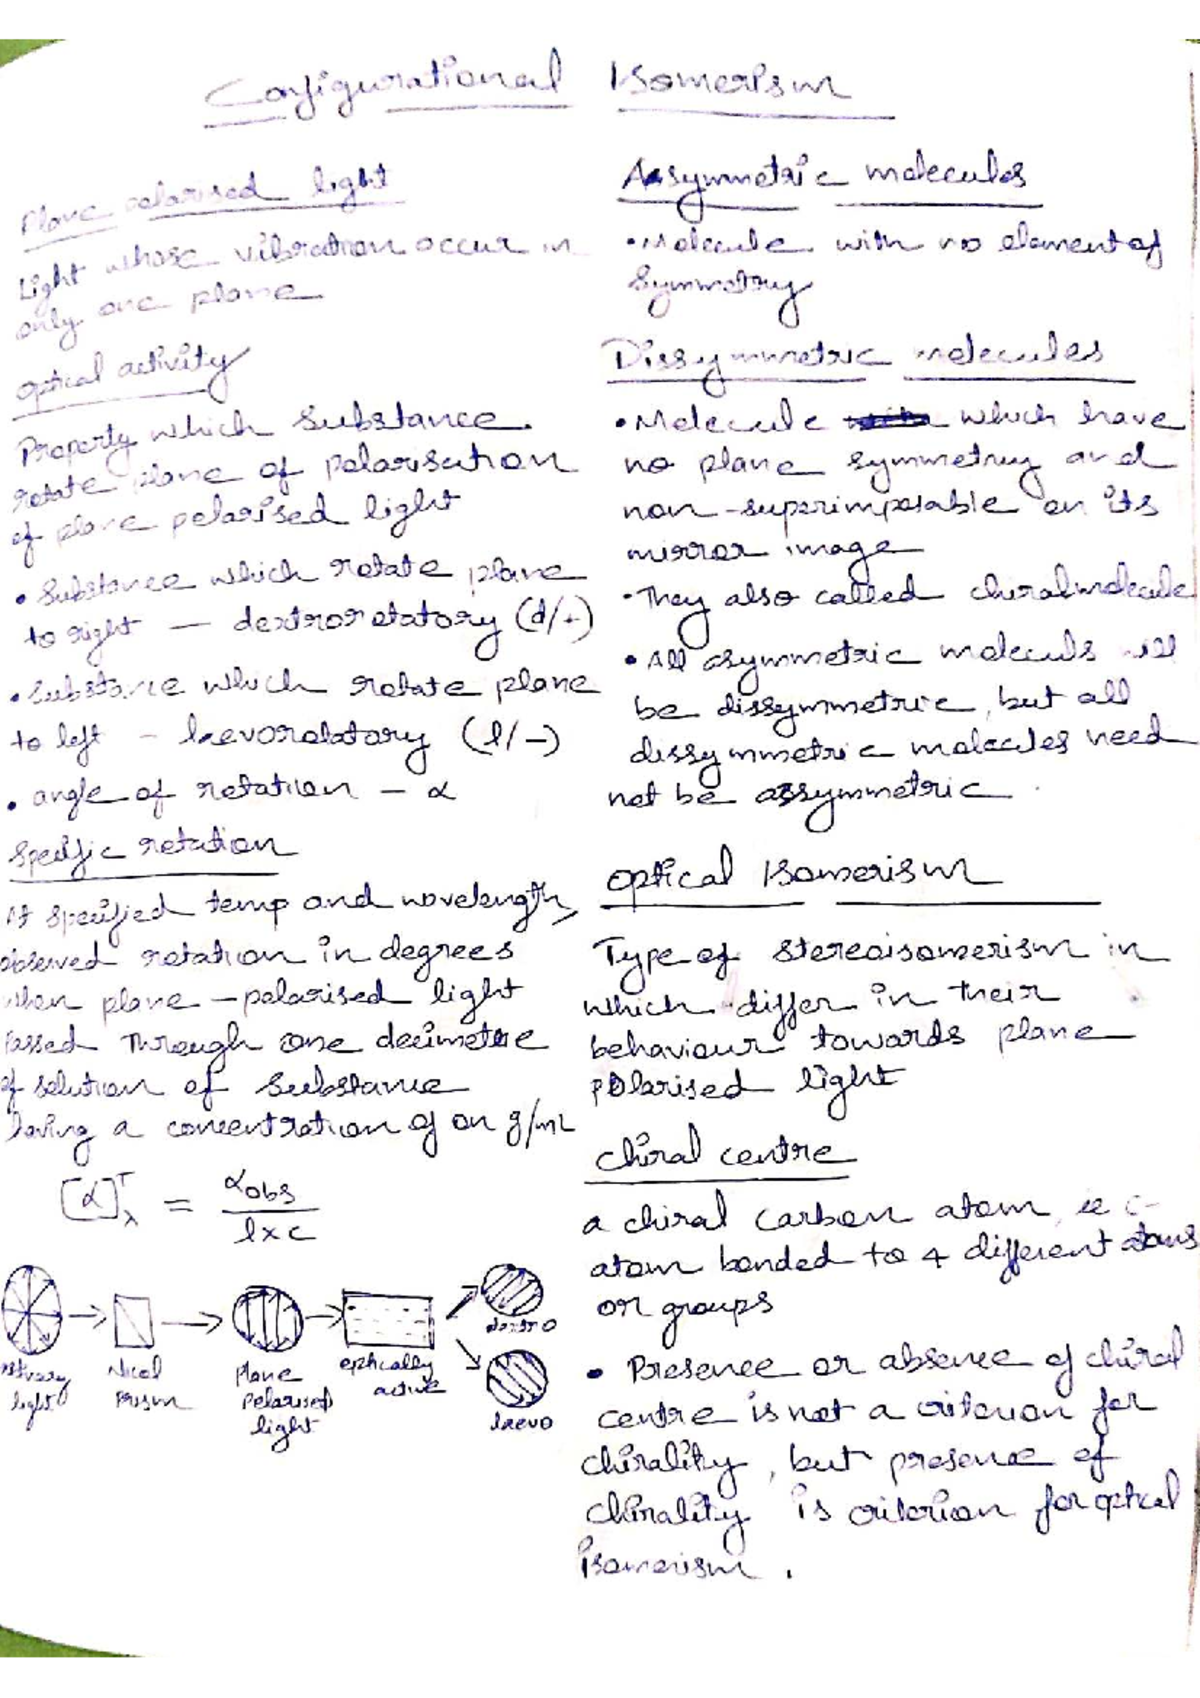 Configurational Isomerism
Plane polarised light
Light whose vibration occur in
only one plane
optical activity
Property which substance
rotate plane of polarisation
of plane polarised light
• Substance which rotate plane
to right — dextrorotatory (d/+)
• Substance which rotate plane
to left - laevorotatory (l/-)
• angle of rotation - α
Specific rotation
At specified temp and wavelength,
observed rotation in degrees
when plane-polarised light
passed through one decimetre
of solution of substance
having a concentration of on g/mL
[α]ᵀλ = αobs / l×c
light
Nicol
Prism
Plane
Polarised
light
optically
active
dextro
laevo
Assymmetric molecules
• Molecule with no element of
symmetry
Dissymmetric molecules
• Molecule which have
no plane symmetry and
non-superimposable on its
mirror image
• They also called chiral molecule
• All asymmetric moleculs will
be dissymmetric, but all
dissymmetric molecules need
not be assymmetric.
Optical Isomerism
Type of stereoisomerism in
which differ in their
behaviour towards plane
polarised light
chiral centre
a chiral carbon atom, ie C-
atom bonded to 4 different atoms
or groups
• Presence or absence of chiral
centre is not a criterion for
chirality, but presence of
chirality is criterion for optical
isomerism.